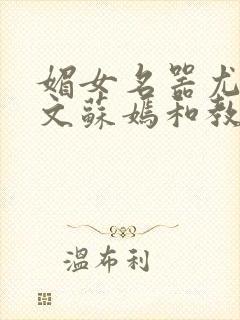 媚女名器尤
文蘇媽和教
溫布利